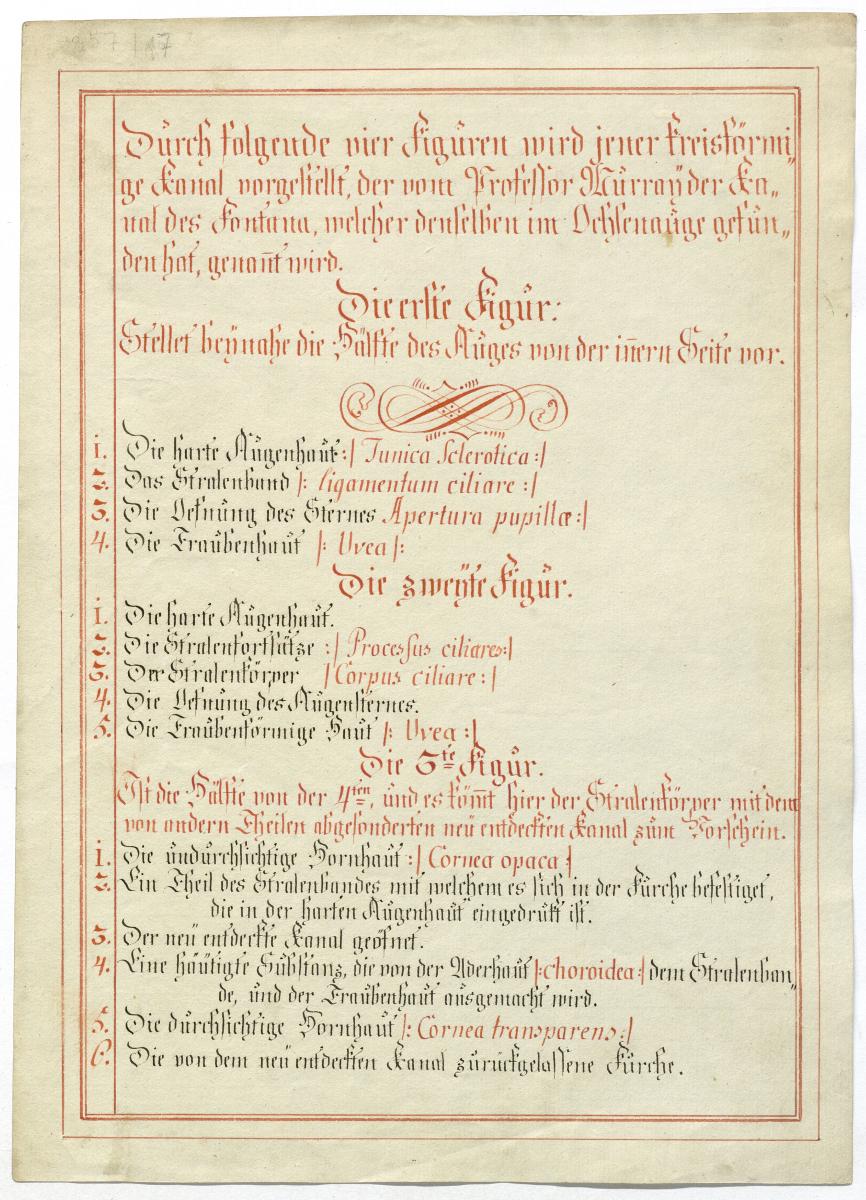 257 / 17
Dŭrch folgende vier Figŭren wird jener kreisförmi„
ge Kanal vorgestellt, der vom Professor Mŭrraÿ der Ka„
nal des Fontana, welcher denselben im Ochsenaŭge gefŭn„
den hat, genan̄t wird.
Die erste Figŭr:
Stellet beÿnahe die Hälfte des Aŭges von der in̄ern Seite vor.
1. Die harte Aŭgenhaŭt :/ Tunica Sclerotica :/
2. Das Stralenband /: ligamentum ciliare :/
3. Die Oefnŭng des Sternes Apertura pupillæ :/
4. Die Traŭbenhaŭt /: Uvea /:
Die zweÿte Figŭr.
1. Die harte Aŭgenhaŭt.
2. Die Stralenfortsätze :/ Processus ciliares :/
3. Der Stralenkörper /Corpus ciliare :/
4. Die Oefnŭng des Aŭgensternes.
5. Die Traŭbenförmige Haŭt /: Uvea :/
Die 3te Figŭr.
Ist die Hälfte von der 4ten, ŭnd es köm̄t hier der Stralenkörper mit dem
von andern Theilen abgesonderten neŭ entdeckten Kanal zŭm Vorschein.
1. Die ŭndŭrchsichtige Hornhaŭt :/ Cornea opaca /
2. Ein Theil des Stralenbandes mit welchem es sich in der Fŭrche befestiget,
die in der harten Aŭgenhaŭt eingedrŭkt ist.
3. Der neŭ entdeckte Kanal geöfnet.
4. Eine häŭtigte Sŭbstanz, die von der Aderhaŭt /: choroidea :/ dem Stralenban„
de, ŭnd der Traŭbenhaŭt aŭsgemacht wird.
5. Die dŭrchsichtige Hornhaŭt /: Cornea transparens :/
6. Die von dem neŭ entdeckten Kanal zŭrŭckgelassene Fŭrche.